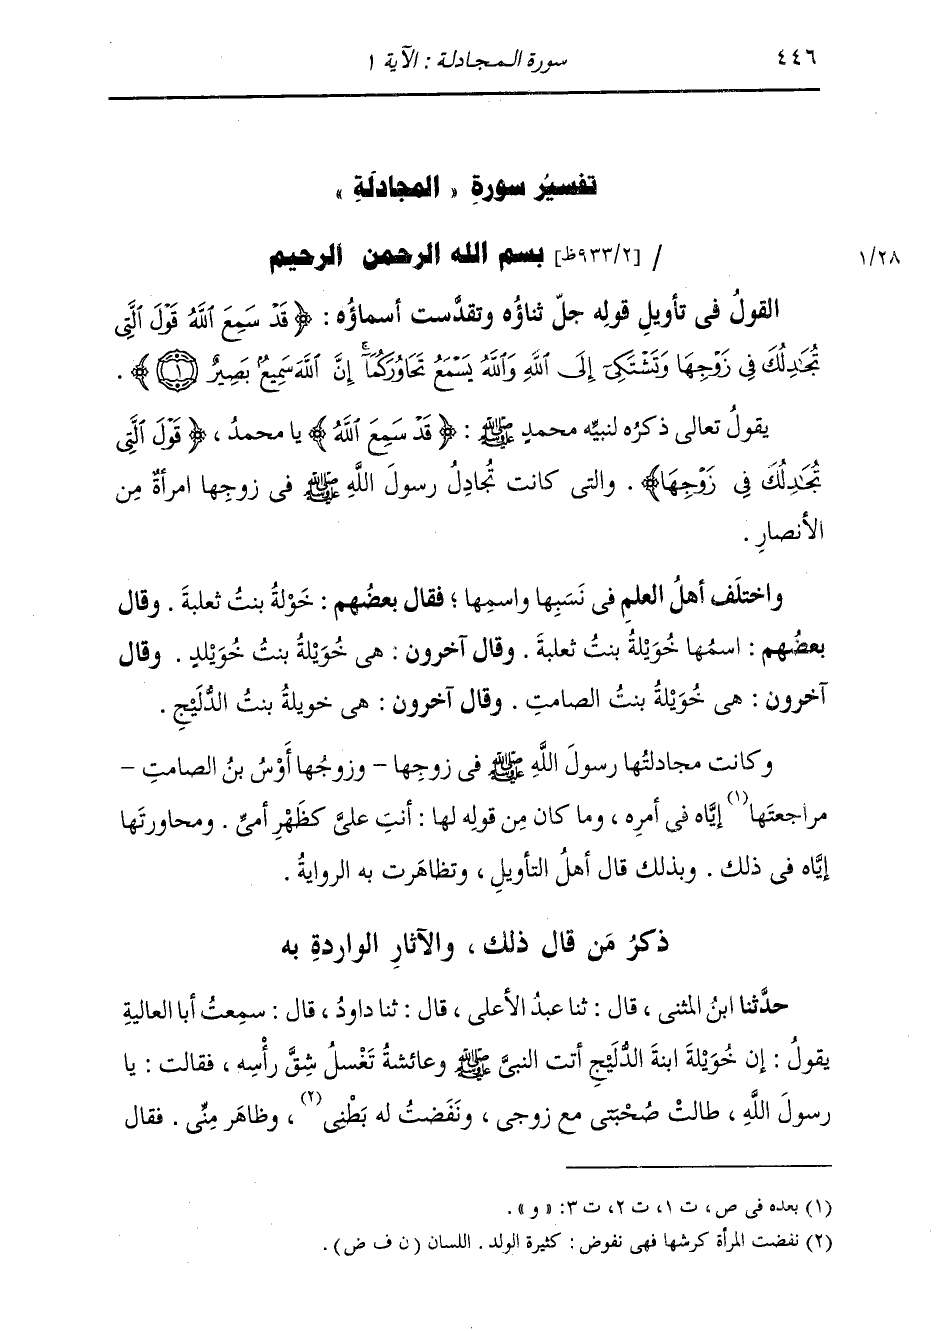 ٤٤٦
سورة المجادلة : الآية ١
تفسيرُ سورةِ « المجادَلَةِ »
١/٢٨
/ [٩٣٣/٢ظ] بسم الله الرحمن الرحيم
القولُ فى تأويلِ قولِه جلّ ثناؤُه وتقدَّست أسماؤُه : ﴿ قَدْ سَمِعَ ٱللَّهُ قَوْلَ ٱلَّتِى
تُجَـٰدِلُكَ فِى زَوْجِهَا وَتَشْتَكِىٓ إِلَى ٱللَّهِ وَٱللَّهُ يَسْمَعُ تَحَاوُرَكُمَآ ۚ إِنَّ ٱللَّهَ سَمِيعٌۢ بَصِيرٌ ﴿١﴾ ﴾ .
يقولُ تعالى ذكرُه لنبيِّه محمدٍ ﷺ : ﴿ قَدْ سَمِعَ ٱللَّهُ ﴾ يا محمدُ ، ﴿ قَوْلَ ٱلَّتِى
تُجَـٰدِلُكَ فِى زَوْجِهَا ﴾ . والتى كانت تُجادِلُ رسولَ اللَّهِ ﷺ فى زوجِها امرأةٌ مِن
الأنصارِ .
واختلَف أهلُ العلمِ فى نَسَبِها واسمِها ؛ فقال بعضُهم : خَوْلةُ بنتُ ثعلبةَ . وقال
بعضُهم : اسمُها خُوَيْلةُ بنتُ ثعلبةَ . وقال آخرون : هى خُوَيْلةُ بنتُ خُوَيْلدٍ . وقال
آخرون : هى خُوَيْلةُ بنتُ الصامتِ . وقال آخرون : هى خويلةُ بنتُ الدُّلَيْجِ .
وكانت مجادلتُها رسولَ اللَّهِ ﷺ فى زوجِها - وزوجُها أَوْسُ بنُ الصامتِ -
مراجعتَها(١) إيَّاه فى أمرِه ، وما كان مِن قولِه لها : أنتِ علىَّ كظَهْرِ أمىِّ . ومحاورتَها
إيَّاه فى ذلك . وبذلك قال أهلُ التأويلِ ، وتظاهَرت به الروايةُ .
ذكرُ مَن قال ذلك ، والآثارِ الواردةِ به
حدَّثنا ابنُ المثنى ، قال : ثنا عبدُ الأعلى ، قال : ثنا داودُ ، قال : سمِعتُ أبا العاليةِ
يقولُ : إن خُوَيْلةَ ابنةَ الدُّلَيْجِ أتت النبىَّ ﷺ وعائشةُ تَغْسلُ شِقَّ رأْسِه ، فقالت : يا
رسولَ اللَّهِ ، طالتْ صُحْبَتى مع زوجى ، ونَفَضتُ له بَطْنِى(٢) ، وظاهَر مِنِّى . فقال
(١) بعده فى ص، ت ١، ت ٢، ت ٣: « و » .
(٢) نفضت المرأة كرشها فهى نفوض : كثيرة الولد . اللسان ( ن ف ض ) .